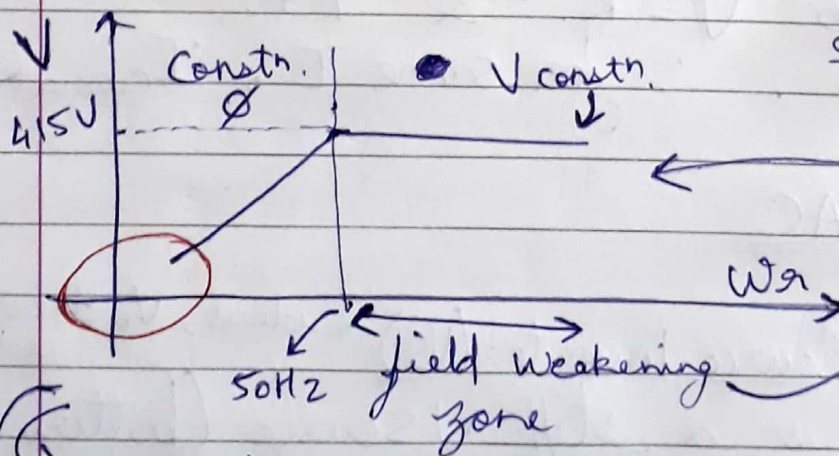 V
Constn.
Ø
V constn.
415V
Wr
50HZ
field weakening
zone